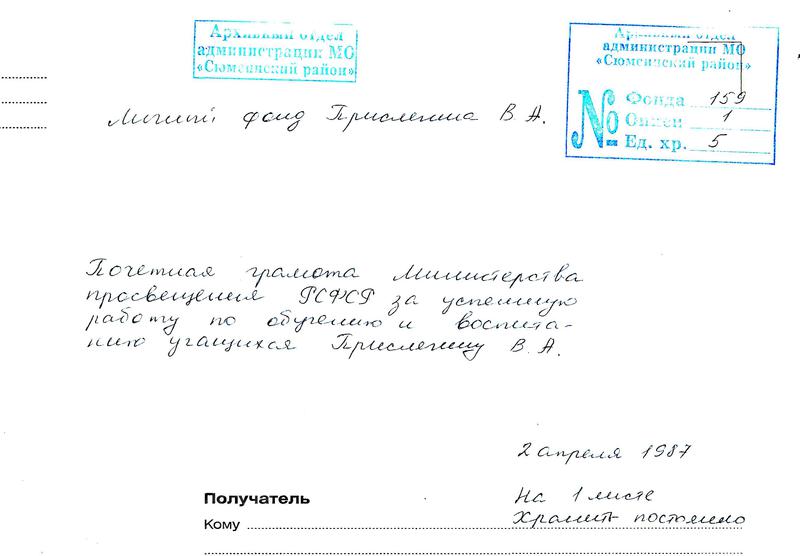 Архивный отдел
администрации МО
«Сюмсинский район»
Архивный отдел
администрации МО
«Сюмсинский район»
№ Фонда 159
Описи 1
Ед. хр. 5
Личный фонд Прислегина В. А.
Почетная грамота Министерства
просвещения РСФСР за успешную
работу по обучению и воспита-
нию учащихся Прислегину В. А.
2 апреля 1987
Получатель
На 1 листе
Кому
Хранить постоянно